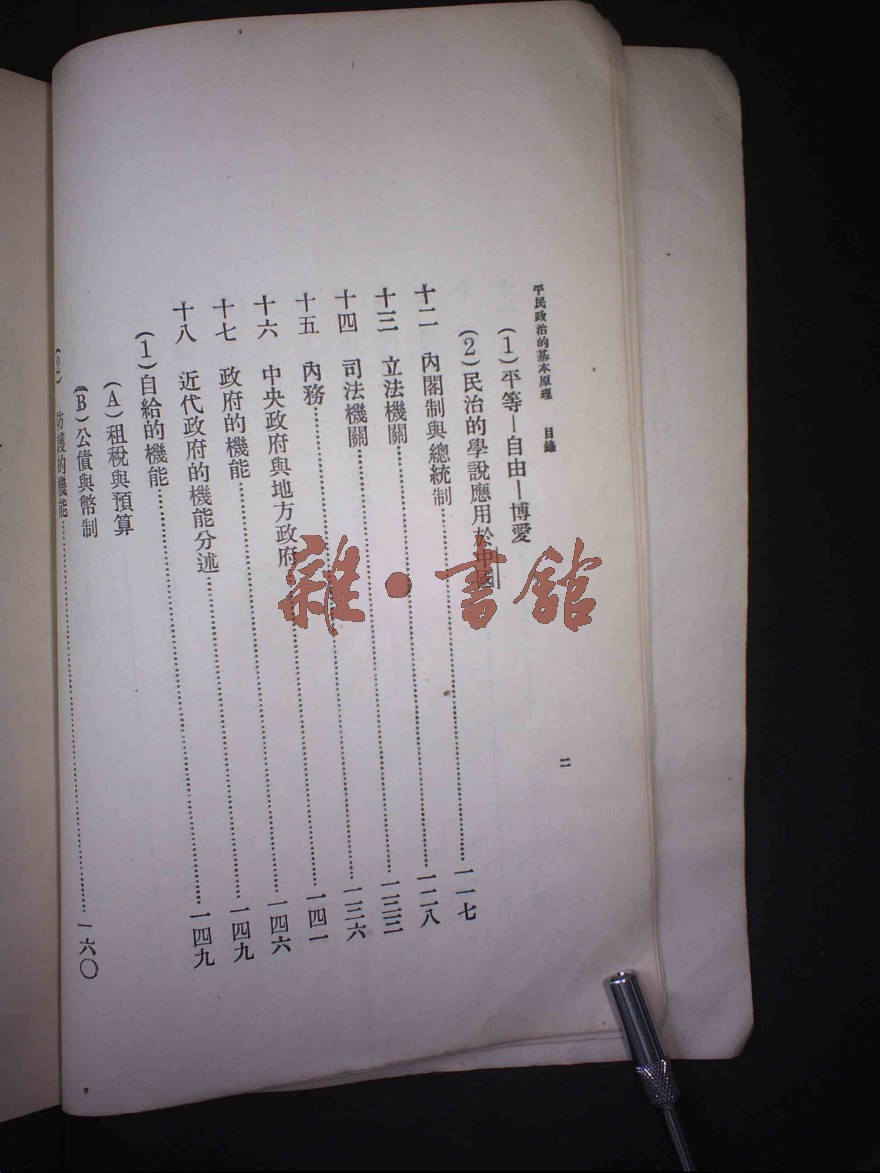 平民政治的基本原理　目錄　二
(1)平等—自由—博愛
(2)民治的學說應用於中國
十二　內閣制與總統制……一一七
十三　立法機關……一二八
十四　司法機關……一三三
十五　內務……一三六
十六　中央政府與地方政府……一四一
十七　政府的機能……一四六
十八　近代政府的機能分述……一四九
(1)自給的機能……一四九
(A)租稅與預算
(B)公債與幣制
(2)　防護的機能……一六〇
雜·書館